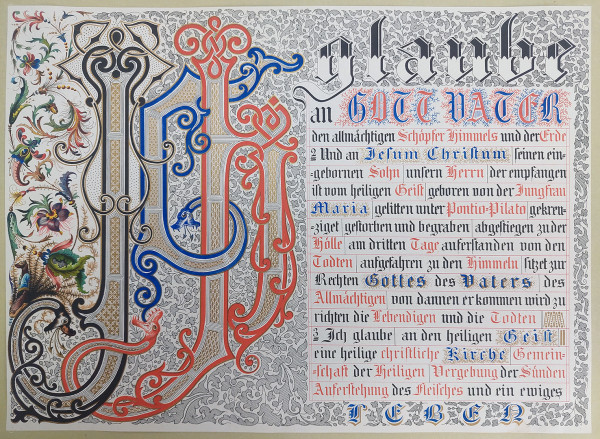 Ich
glaube
an GOTT VATER
den allmächtigen Schöpfer Himmels und der Erde
Und an Jesum Christum seinen ein-
gebornen Sohn unsern Herrn der empfangen
ist vom heiligen Geist geboren von der Jungfrau
Maria gelitten unter Pontio-Pilato gekreu-
ziget gestorben und begraben abgestiegen zu der
Hölle am dritten Tage auferstanden von den
Todten aufgefahren zu den Himmeln sitzet zur
Rechten Gottes des Vaters des
Allmächtigen von dannen er kommen wird zu
richten die Lebendigen und die Todten
Ich glaube an den heiligen Geist
eine heilige christliche Kirche Gemein-
schaft der Heiligen Vergebung der Sünden
Auferstehung des Fleisches und ein ewiges
LEBEN